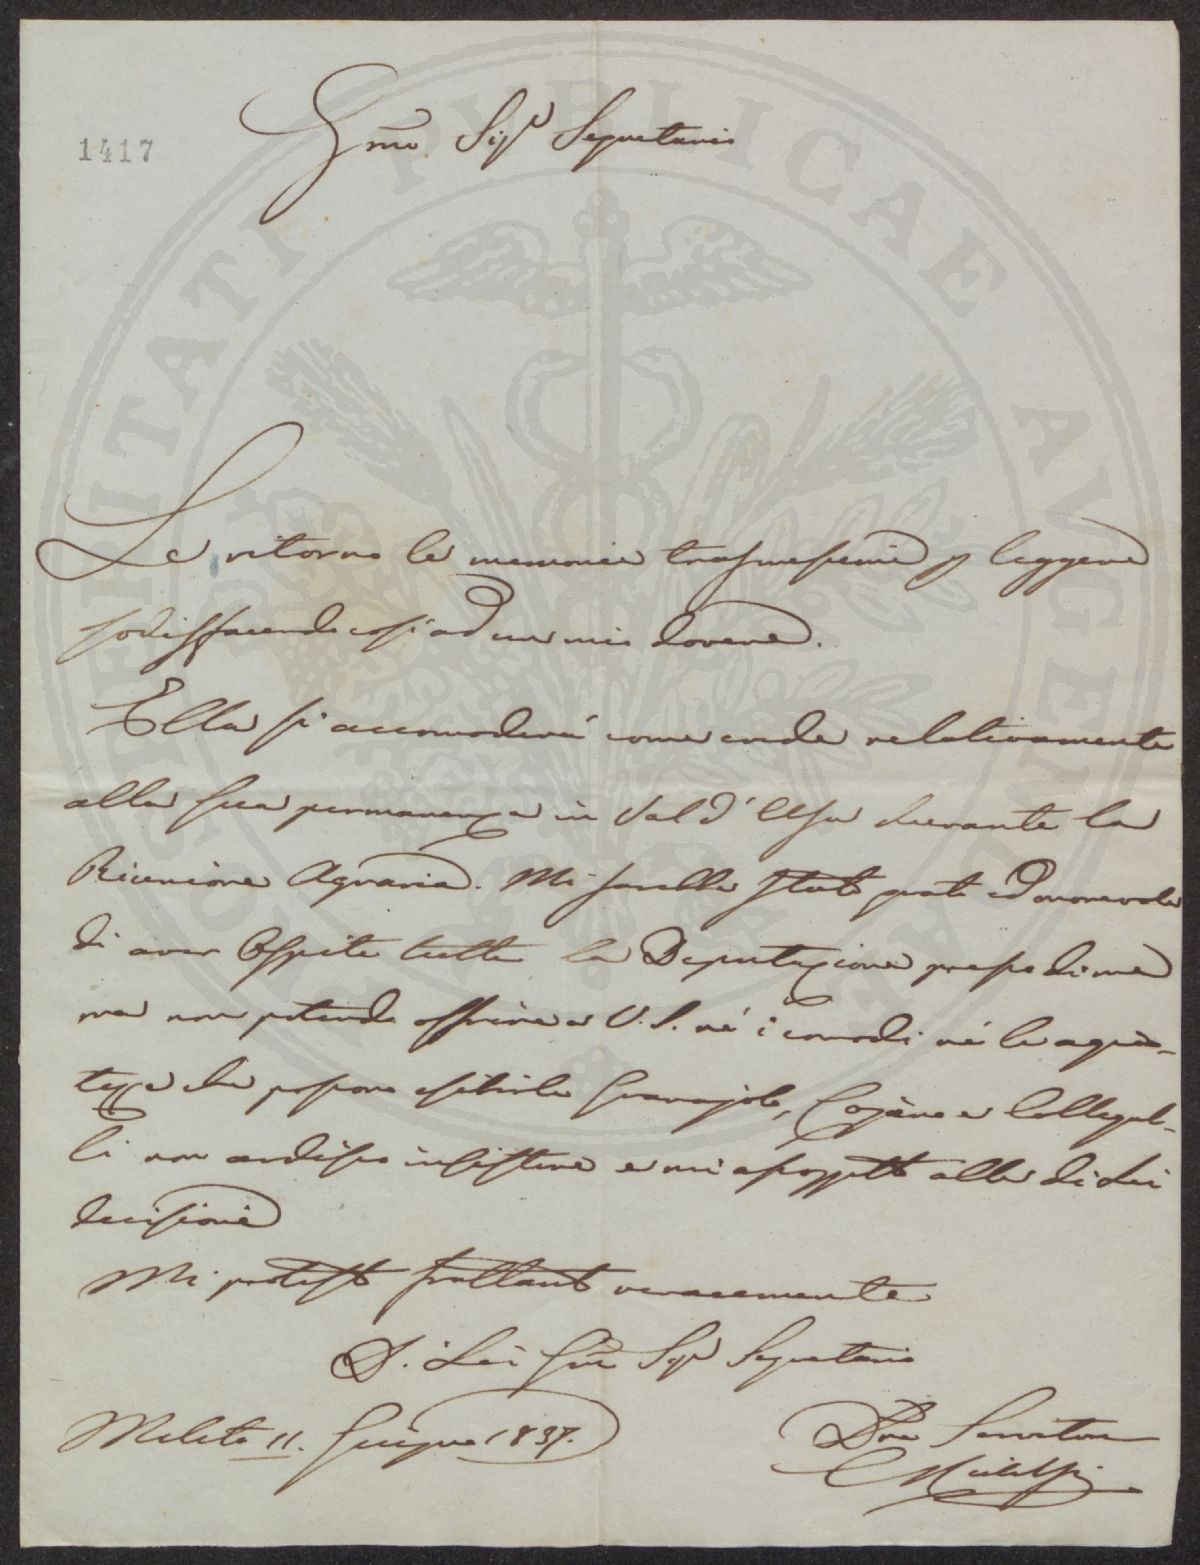 1417
Gmo Sigr Segretario
Le ritorno le memorie trasmessemi p leggere
sodisfacendo così ad un mio dovere.
Ella si accomoderà come crede relativamente
alla sua permanenza in Val d'Elsa durante la
Riunione Agraria. Mi sarebbe stato grato ed onorevole
di aver Ospite tutta la Deputazione presso di me
ma non potendo offrire a V.S. nè i comodi nè le agia-
tezze che possono esibirle Granajolo, Cojano e Collegal-
li non ardisco insistere e mi assoggetto alla di Lei
decisione
Mi protesto frattanto veracemente
D. Lei Gmo Sigr Segretario
Meleto 11. Giugno 1837.
Dmo Servitore
C Ridolfi
PROSPERITATI PVBLICAE AVGENDAE